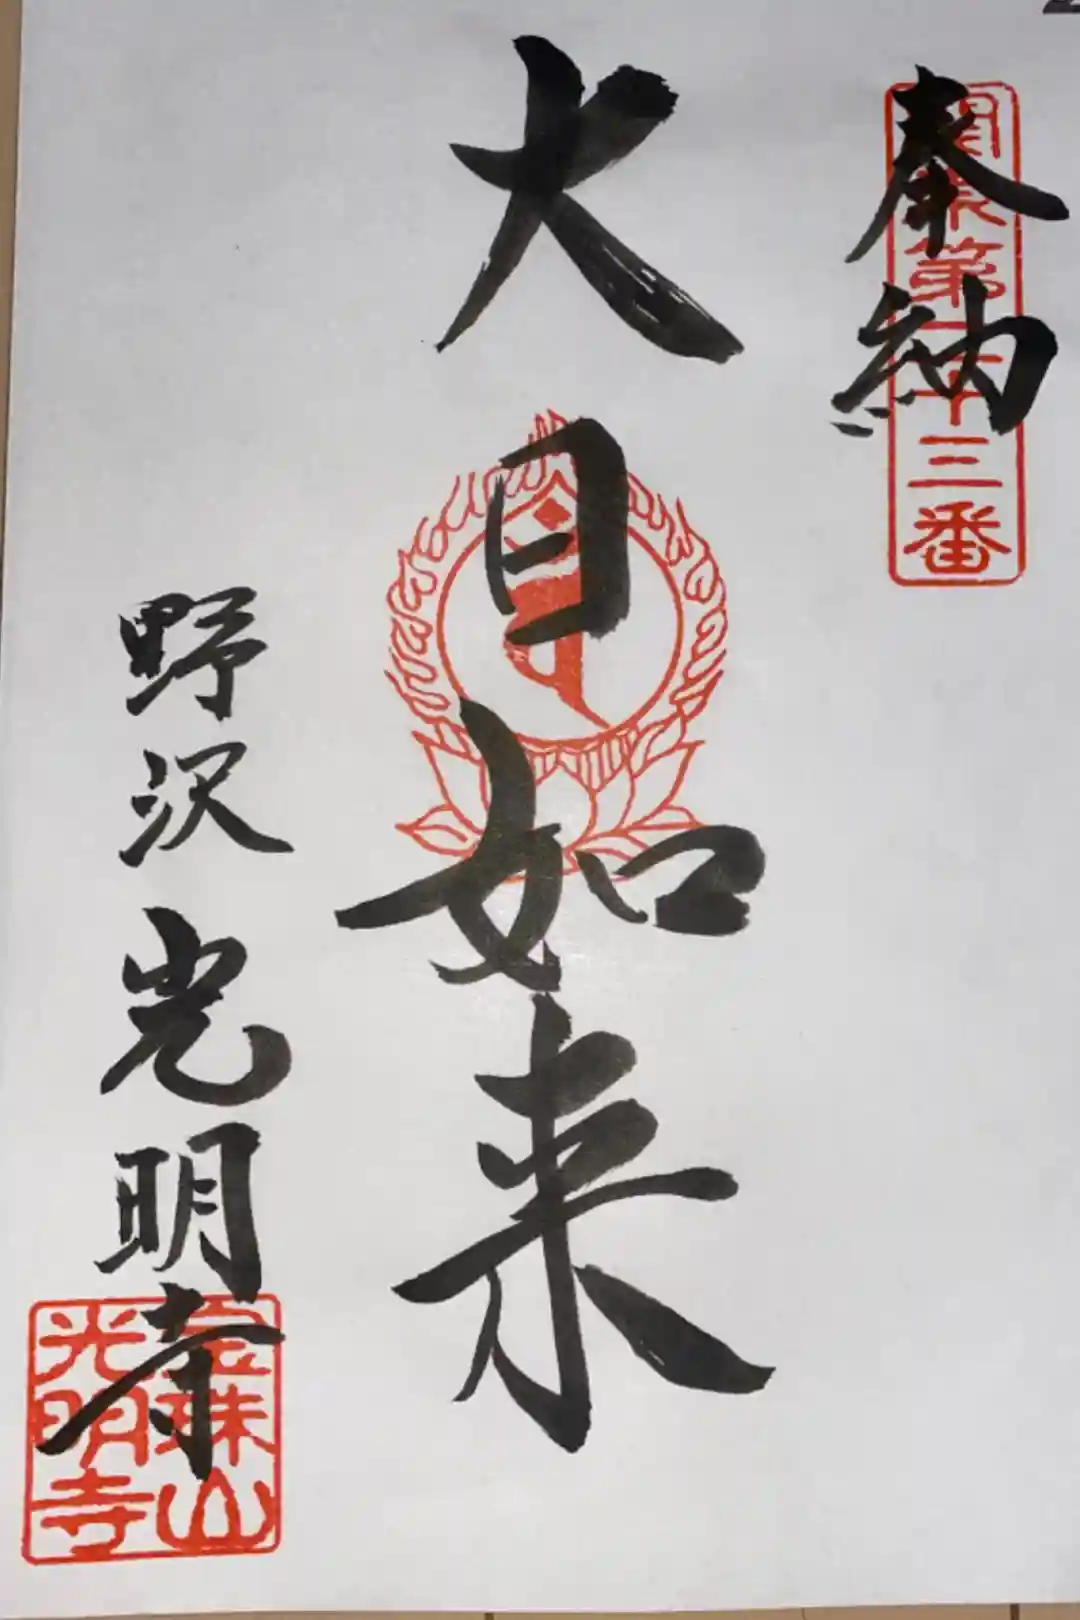 奉納
関東第二十三番
大日如来
野沢 光明寺
金珠山
光明寺